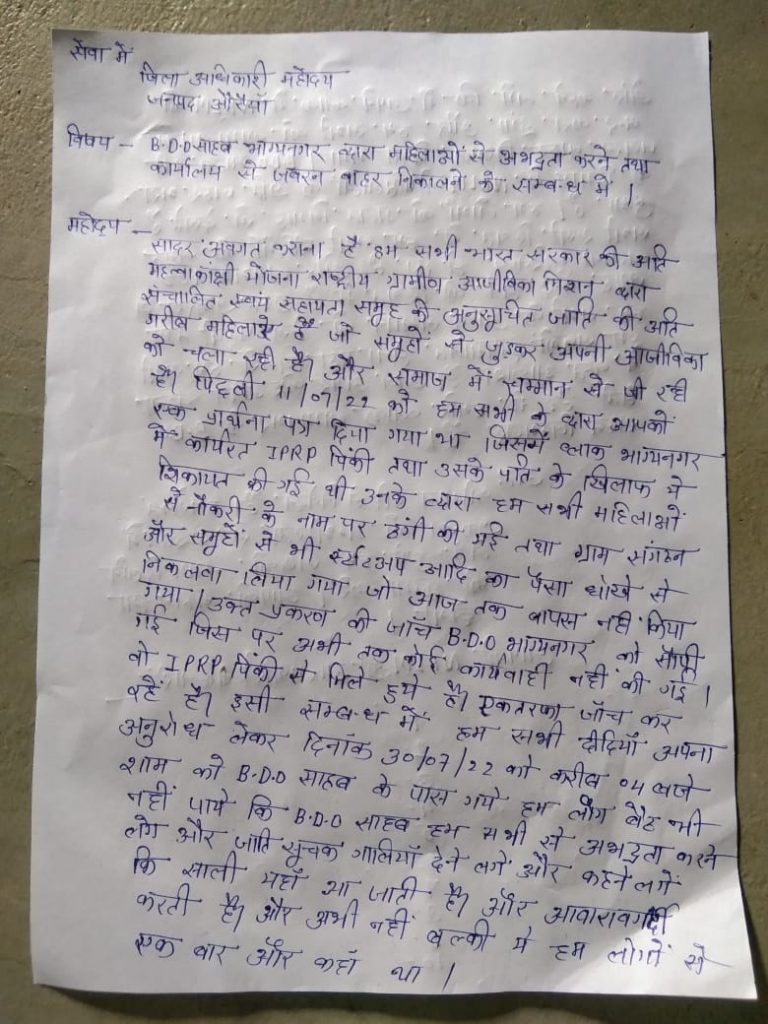 सेवा में
जिला अधिकारी महोदय
जनपद औरैया
विषय - B.D.O साहब भाग्यनगर द्वारा महिलाओं से अभद्रता करने तथा
कार्यालय से जबरन बाहर निकालने के सम्बन्ध में |
महोदय -
सादर अवगत कराना है हम सभी भारत सरकार की अति
महत्वाकांक्षी योजना राष्ट्रीय ग्रामीण आजीविका मिशन द्वारा
संचालित स्वयं सहायता समूह की अनुसूचित जाति की अति
गरीब महिलाऐं हैं जो समूहों से जुड़कर अपनी आजीविका
को चला रही है। और समाज में सम्मान से जी रही
है। पिछली 11/07/22 को हम सभी के द्वारा आपको
एक प्रार्थना पत्र दिया गया था जिसमें ब्लाक भाग्यनगर
में कार्यरत IPRP पिंकी तथा उसके पति के खिलाफ ये
शिकायत की गई थी उनके द्वारा हम सभी महिलाओं
से नौकरी के नाम पर ठगी की गई तथा ग्राम संगठन
और समूहों से भी स्टार्टअप आदि का पैसा धोखे से
निकलवा लिया गया जो आज तक वापस नहीं किया
गया | उक्त प्रकरण की जाँच B.D.O भाग्यनगर को सौंपी
गई जिस पर अभी तक कोई कार्यवाही नहीं की गई |
वो IPRP पिंकी से मिले हुये है। एकतरफा जाँच कर
रहें है। इसी सम्बन्ध में हम सभी दीदियाँ अपना
अनुरोध लेकर दिनाँक 30/07/22 को करीब 04 बजे
शाम को B.D.O साहब के पास गये हम लोग बैठ भी
नहीं पाये कि B.D.O साहब हम सभी से अभद्रता करने
लगे और जाति सूचक गालियाँ देने लगें और कहने लगें
कि साली यहाँ आ जाती है। और आवारागर्दी
करती है। और अभी नहीं बल्की ये हम लोगों से
एक बार और कहाँ था |